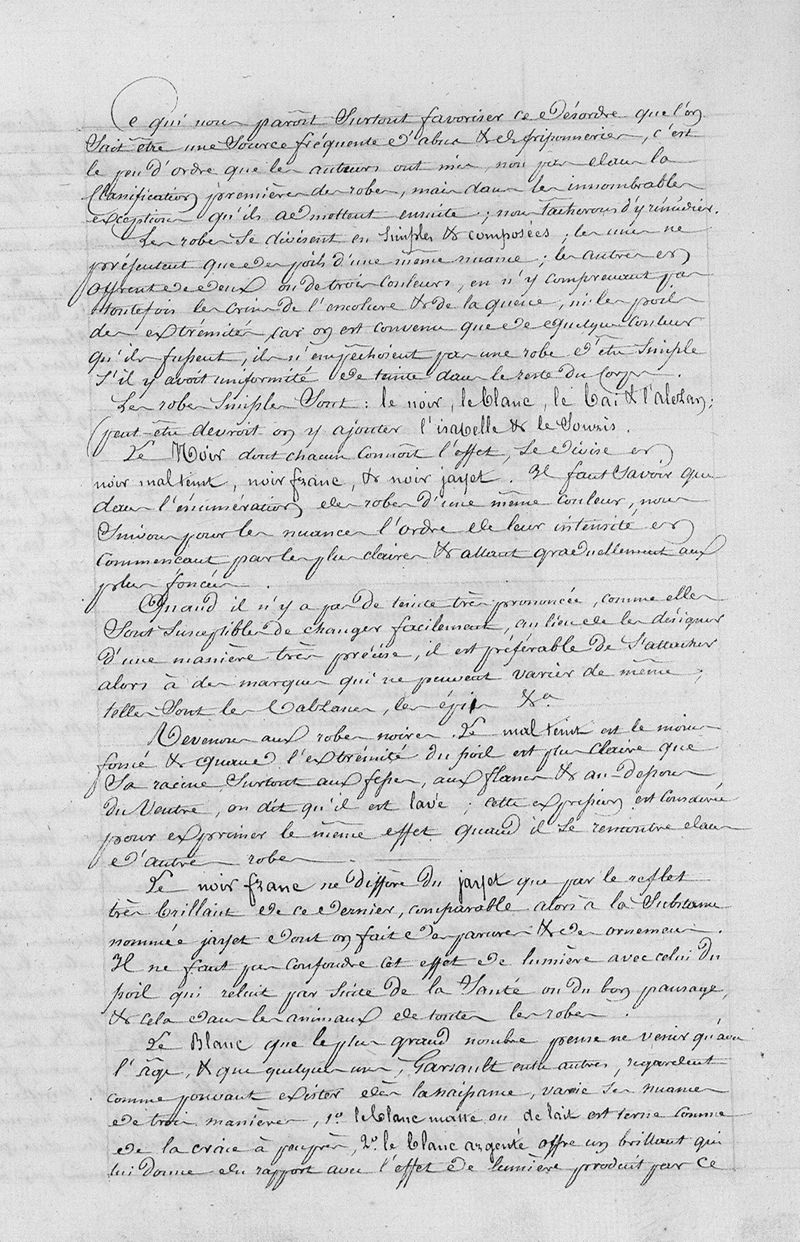 Ce qui nous parôit Surtout favoriser ce désordre que l'on
Sait être une Source fréquente d'abus & de friponneries, c'est
le peu d'ordre que les auteurs ont mis, non pas dans la
Classification première des robes, mais dans les innombrables
exceptions qu'ils admettent ensuite ; nous tacherons d'y rémédier.
Les robes Se divisent en Simples & composées ; les unes ne
présentent que des poils d'une même nuance ; les autres en
offrent de deux ou de trois Couleurs, en n'y comprenant pas
toutefois les crins de l'encolure & de la queüe, ni les poils
des extrémités car on est convenu que de quelque Couleur
qu'ils fussent, ils n'empêchoient pas une robe d'être Simple
S'il y avoit uniformité de teinte dans le reste du Corps.
Les robes Simples Sont : le noir, le blanc, le bai & l'alezan ;
peut-être devroit on y ajouter l'isabelle & le Souris.
Le Noir dont chacun Connoît l'effet, Se divise en
noir mal teint, noir franc, & noir jayet. Il faut Savoir que
dans l'énumération des robes d'une même couleur, nous
Suivons pour les nuances l'ordre de leur intensité en
Commençant par les plus claires & allant graduellement aux
plus foncées.
Quand il n'y a pas de teinte très prononcée, comme elles
Sont Susceptibles de changer facilement, au lieu de les désigner
d'une manière très précise, il est préférable de S'attacher
alors à des marques qui ne peuvent varier de même,
telles Sont les balzanes, les épis &a
Revenons aux robes noires. Le mal teint est le moins
foncé & quand l'extrémité du poil est plus claire que
Sa racine Surtout aux fesses, aux flancs & au-dessous
du Ventre, on dit qu'il est lavé ; cette expression est Consacrée
pour exprimer le même effet quand il Se rencontre dans
d'autres robes
Le noir franc ne diffère du jayet que par le reflet
très brillant de ce dernier, comparable alors à la Substance
nommée jayet dont on fait des parures & des ornemens.
Il ne faut pas confondre cet effet de lumière avec celui du
poil qui reluit par Suite de la Santé ou du bon pansage,
& cela dans les animaux de toutes les robes.
Le Blanc que le plus grand nombre pense ne venir qu'avec
l'âge, & que quelques uns, Garsault entre autres, regardent
comme pouvant exister dès la naissance, varie Ses nuances
de trois manières, 1º. le blanc matte ou de lait est terne comme
de la craie à peuprès, 2º. le blanc argenté offre un brillant qui
lui donne du rapport avec l'effet de lumière produit par ce